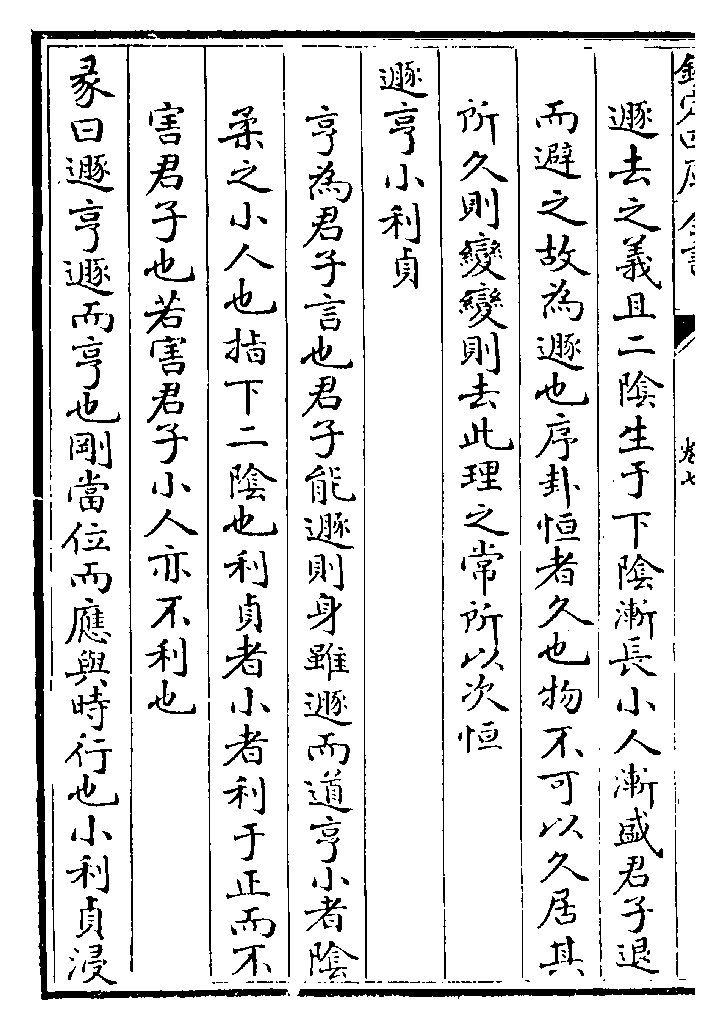 欽定四庫全書
卷七
遯去之義且二陰生于下陰漸長小人漸盛君子退
而避之故為遯也序卦恒者久也物不可以久居其
所久則變變則去此理之常所以次恒
遯亨小利貞
亨為君子言也君子能遯則身雖遯而道亨小者陰
柔之小人也指下二陰也利貞者小者利于正而不
害君子也若害君子小人亦不利也
彖曰遯亨遯而亨也剛當位而應與時行也小利貞浸